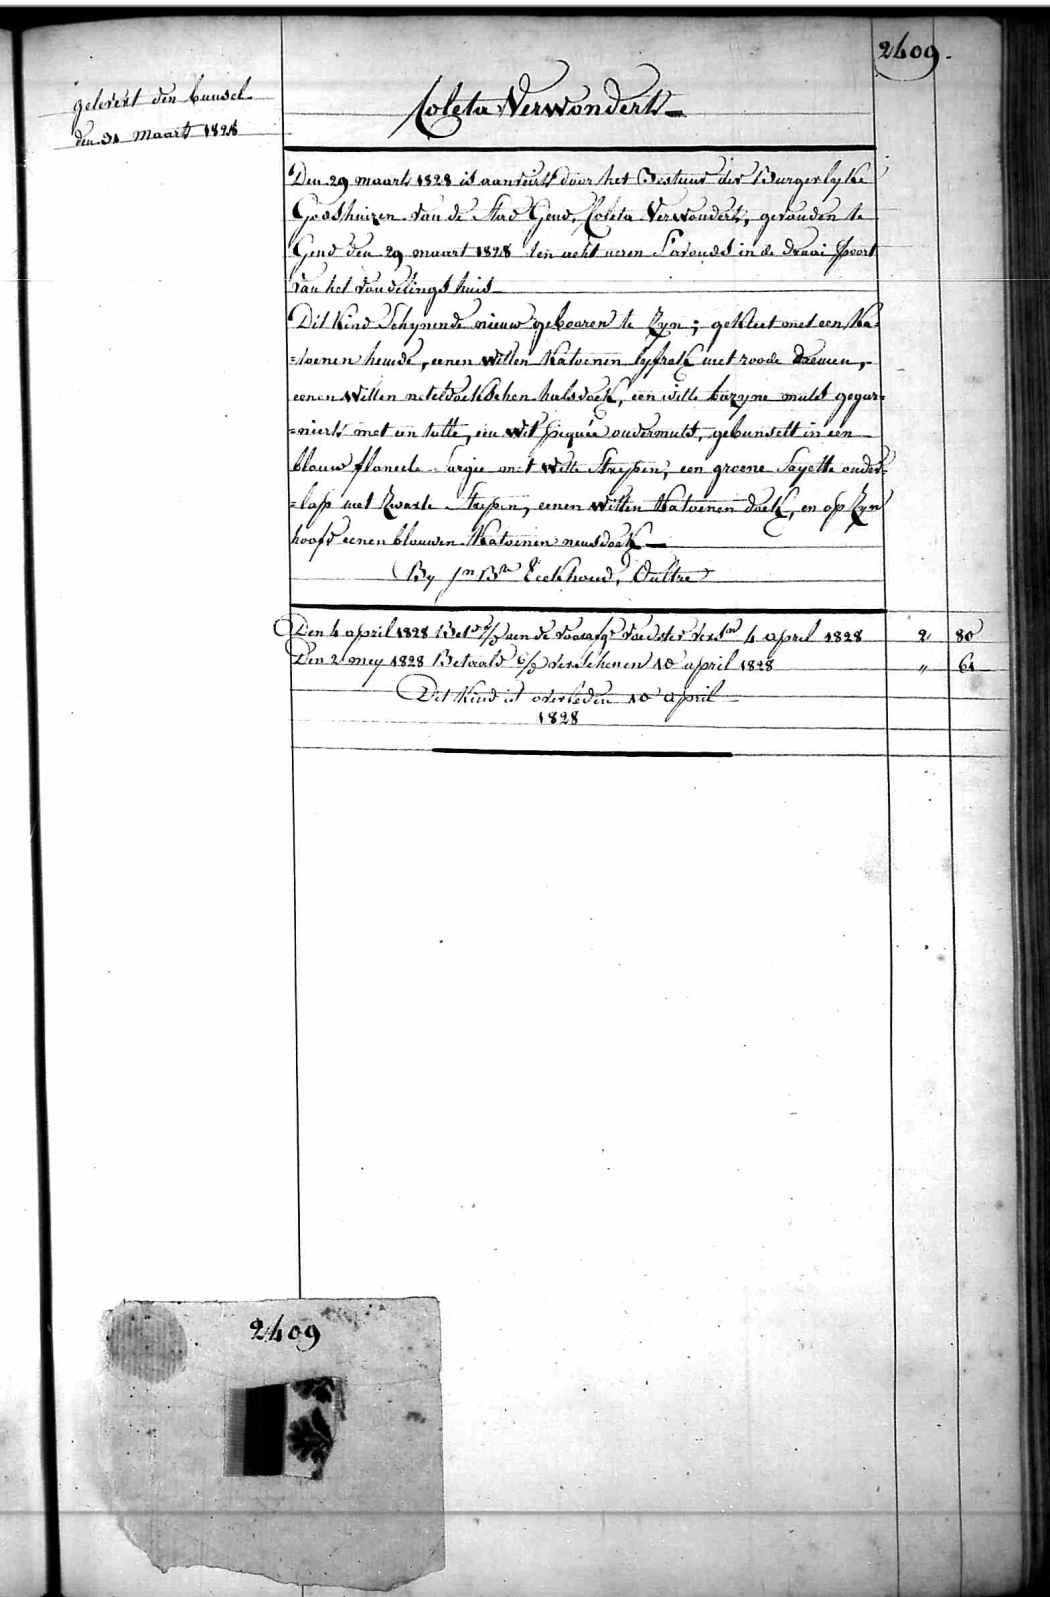 2409.
gelevert den bunsel
den 31 maart 1828
Coleta Verwonderts
Den 29 maarts 1828 is aanveirt door het Bestuur der Burgerlyke
Godshuizen van de Stad Gend, Coleta Verwonderts, gevonden te
Gend den 29 maart 1828 ten acht uren S'avonds in de draai poort
van het vondelings huis
Dit Kind Schynende nieuw gebooren te Zyn; gekleet met een Ka=
=toenen hemde, eenen witten Katoenen lyfrok met roode
eenen witten neteldoekschen halsdoek, een witte bazyne muts gegar=
=niert met een tulle, een wit piquée ondermuts, gebunselt in een
blauw flaneele Surgie met witte Strepen, een groene Sayette onder=
=lap met Zwarte Strepen, eenen witten Katoenen doek, en op Zyn
hoofd eenen blauwen Katoenen neusdoek
By Jn Bte Eeckhoud, Oultre
Den 4 april 1828 Bet. aen de voedster 4 april 1828 2 80
Den 2 mey 1828 Betaald verschenen 10 april 1828 " 61
Dit Kind is overleden 10 april
1828
2409